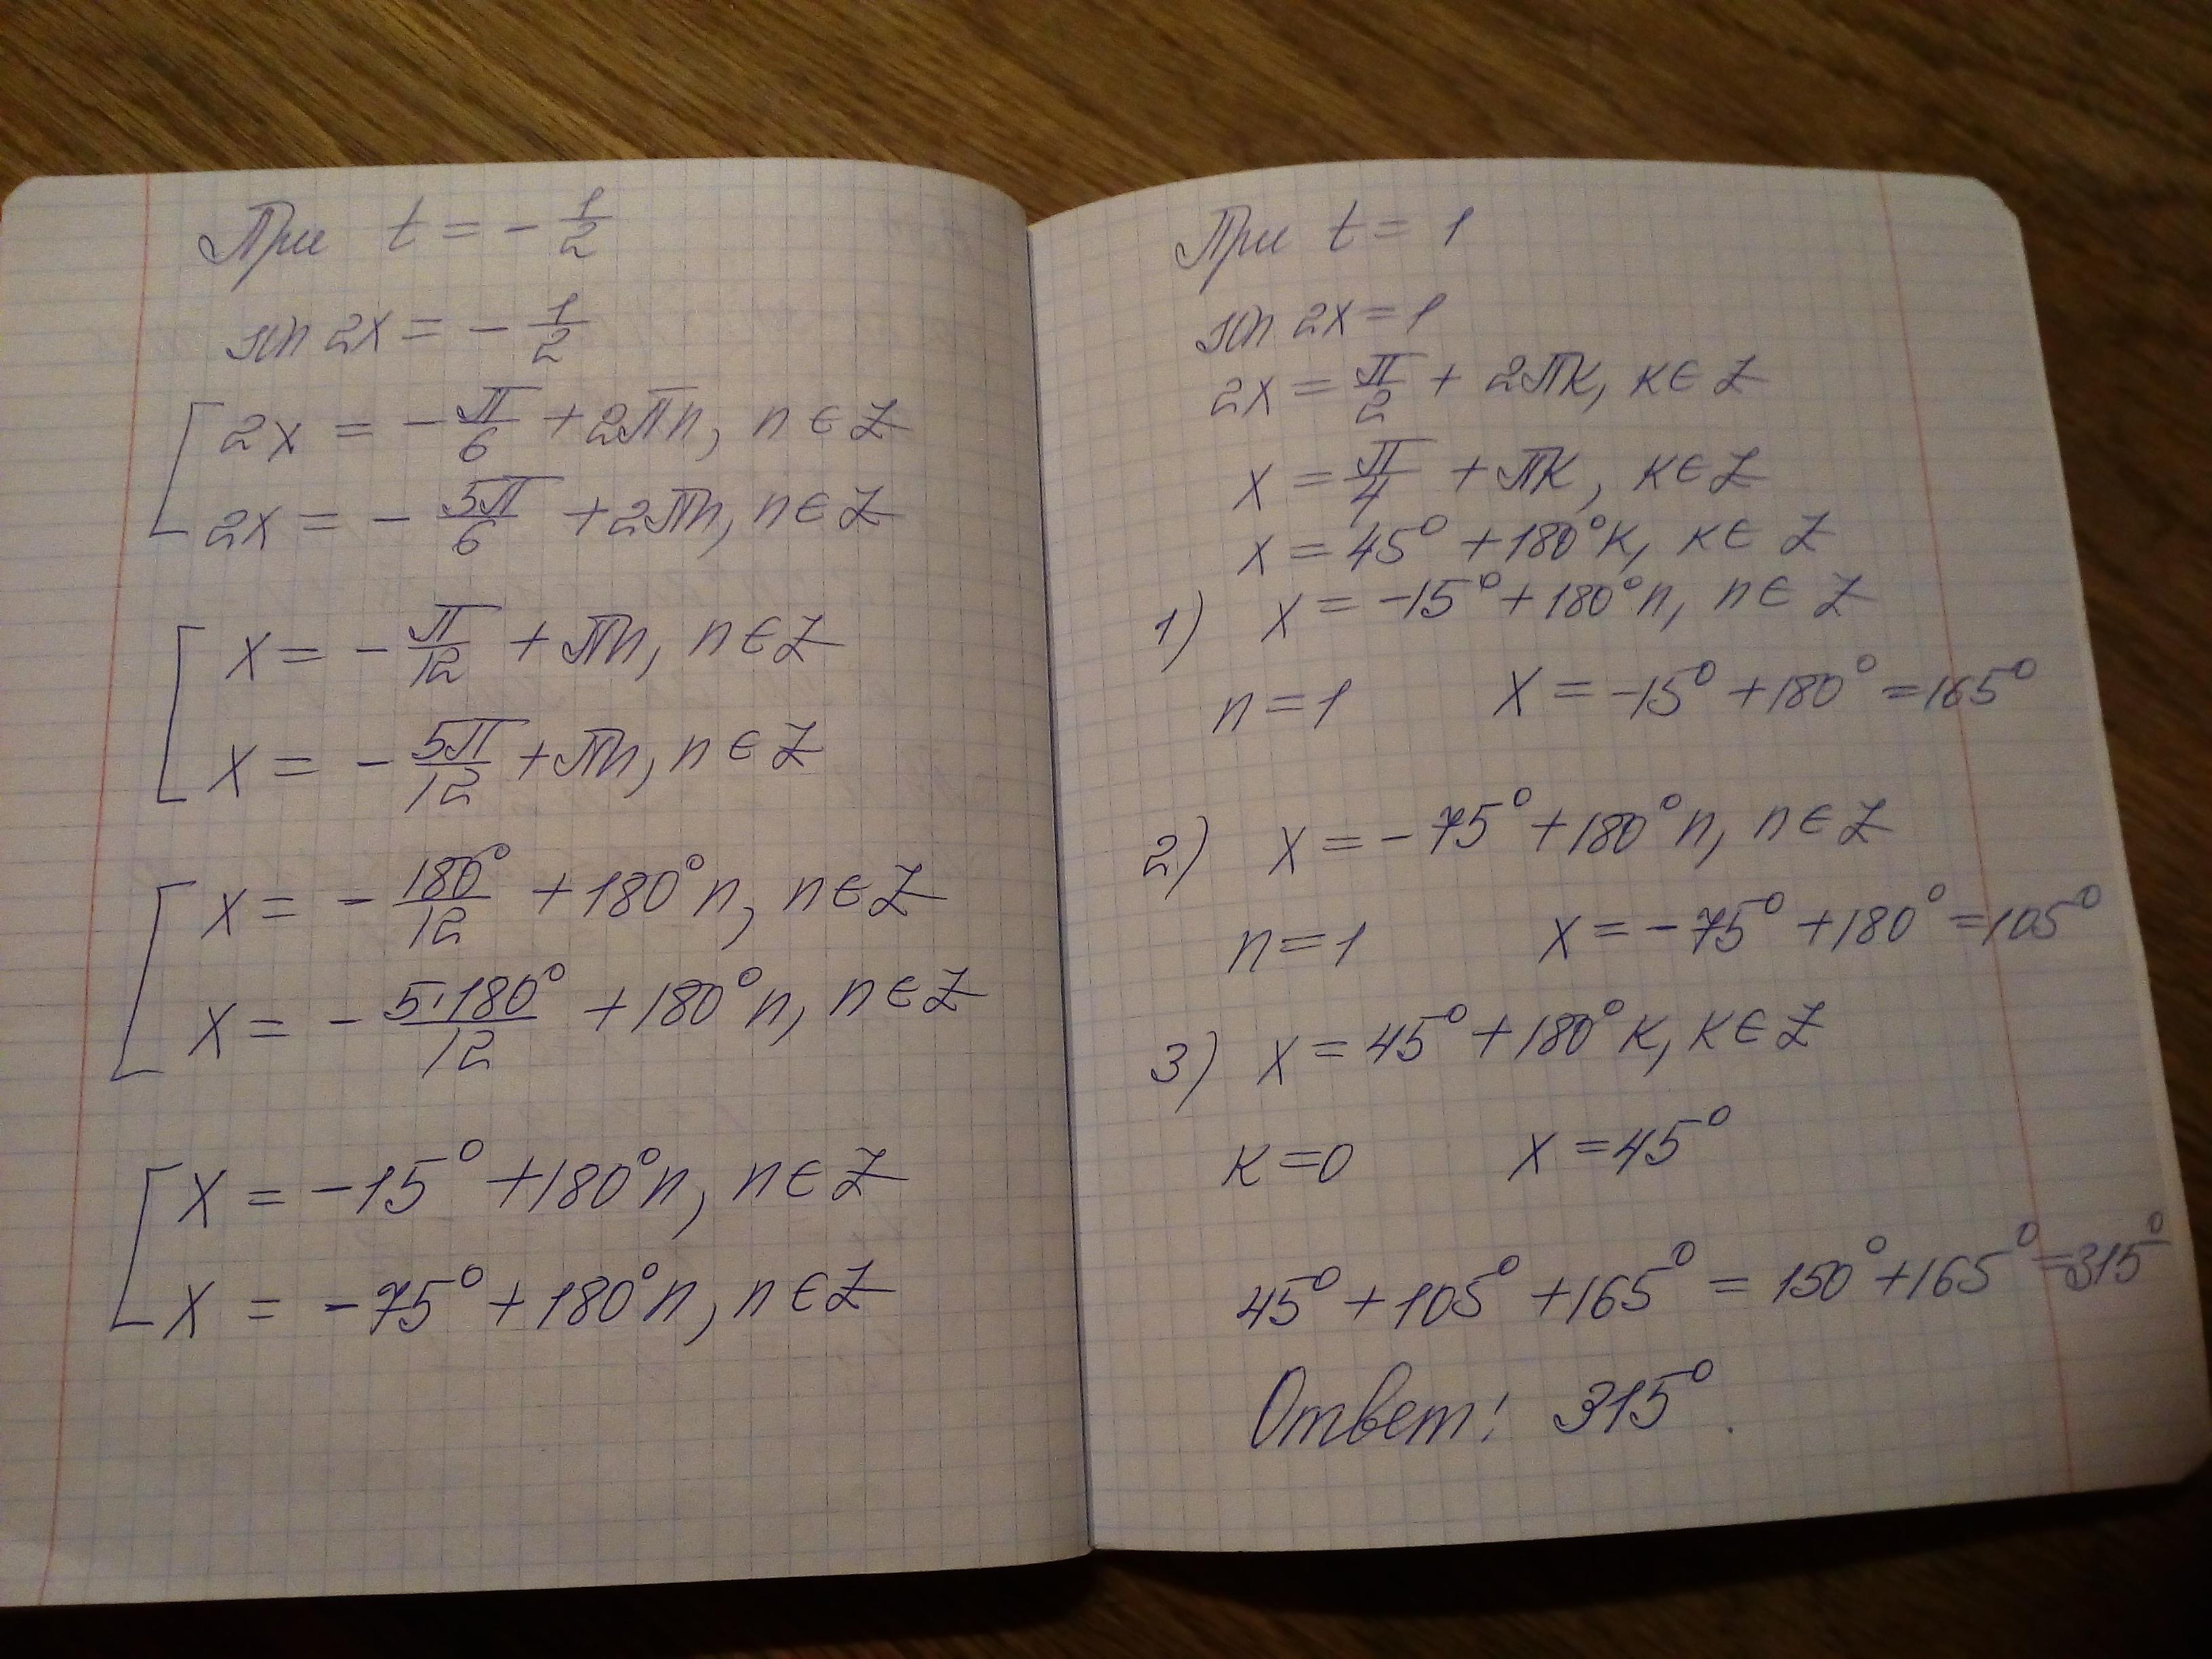 При t = - 1/2
sin 2x = - 1/2
[ 2x = - π/6 + 2πn, n ∈ Z
2x = - 5π/6 + 2πn, n ∈ Z
[ x = - π/12 + πn, n ∈ Z
x = - 5π/12 + πn, n ∈ Z
[ x = - 180°/12 + 180°n, n ∈ Z
x = - 5·180°/12 + 180°n, n ∈ Z
[ x = -15° + 180°n, n ∈ Z
x = -75° + 180°n, n ∈ Z
При t = 1
sin 2x = 1
2x = π/2 + 2πk, k ∈ Z
x = π/4 + πk, k ∈ Z
x = 45° + 180°k, k ∈ Z
1) x = -15° + 180°n, n ∈ Z
n = 1 x = -15° + 180° = 165°
2) x = -75° + 180°n, n ∈ Z
n = 1 x = -75° + 180° = 105°
3) x = 45° + 180°k, k ∈ Z
k = 0 x = 45°
45° + 105° + 165° = 150° + 165° = 315°
Ответ: 315°.